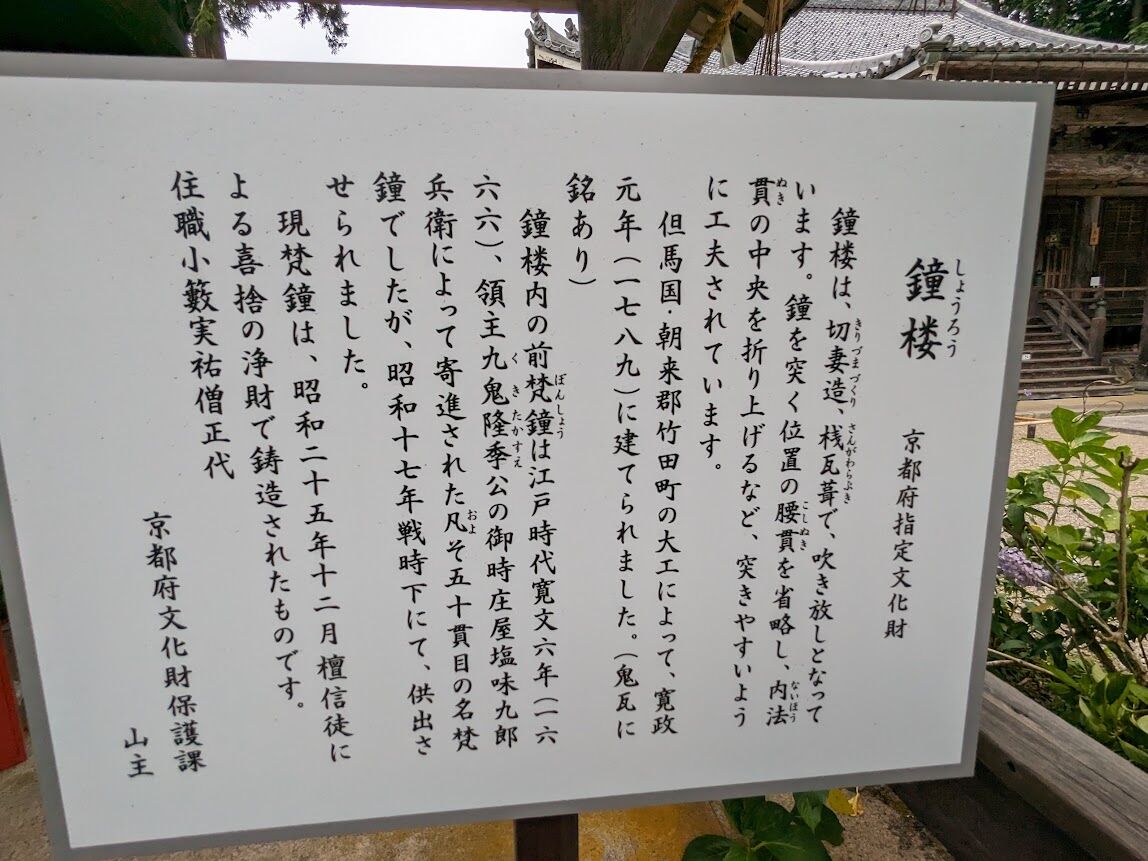 鐘楼
しょうろう
京都府指定文化財
鐘楼は、切妻造、桟瓦葺で、吹き放しとなって
きりづまづくり さんがわらぶき
います。鐘を突く位置の腰貫を省略し、内法
こしぬき ないほう
貫の中央を折り上げるなど、突きやすいよう
ぬき
に工夫されています。
但馬国・朝来郡竹田町の大工によって、寛政
元年(一七八九)に建てられました。(鬼瓦に
銘あり)
鐘楼内の前梵鐘は江戸時代寛文六年(一六
ぼんしょう
六六)、領主九鬼隆季公の御時庄屋塩味九郎
くきたかすえ
兵衛によって寄進された凡そ五十貫目の名梵
およ
鐘でしたが、昭和十七年戦時下にて、供出さ
せられました。
現梵鐘は、昭和二十五年十二月檀信徒に
よる喜捨の浄財で鋳造されたものです。
住職小籔実祐僧正代
京都府文化財保護課
山主